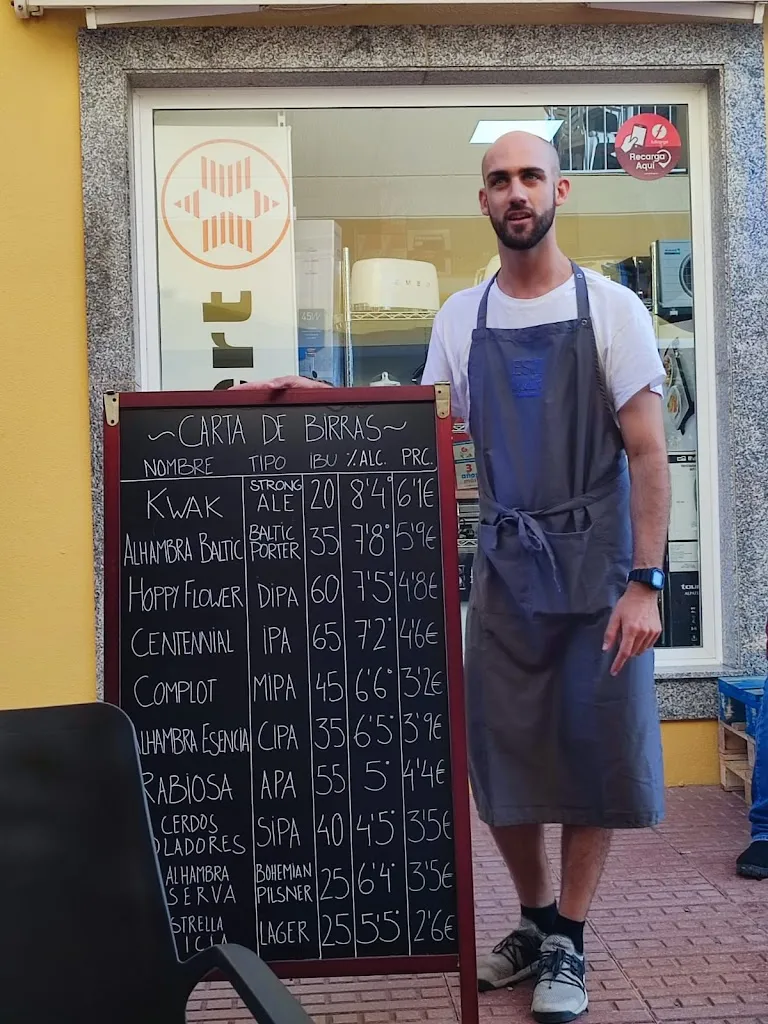 Recarga
Aquí
SMEG
ort
~CARTA DE BIRRAS~
NOMBRE TIPO IBU %ALC. PRC.
KWAK STRONG ALE 20 8'4° 6'1€
ALHAMBRA BALTIC BALTIC PORTER 35 7'8° 5'9€
HOPPY FLOWER DIPA 60 7'5° 4'8€
CENTENNIAL IPA 65 7'2° 4'6€
COMPLOT MIPA 45 6'6° 3'2€
ALHAMBRA ESENCIA CIPA 35 6'5° 3'9€
RABIOSA APA 55 5° 4'4€
CERDOS OLADORES SIPA 40 4'5° 3'5€
ALHAMBRA SERVA BOHEMIAN PILSNER 25 6'4° 3'5€
STRELLA ICIA LAGER 25 5'5° 2'6€